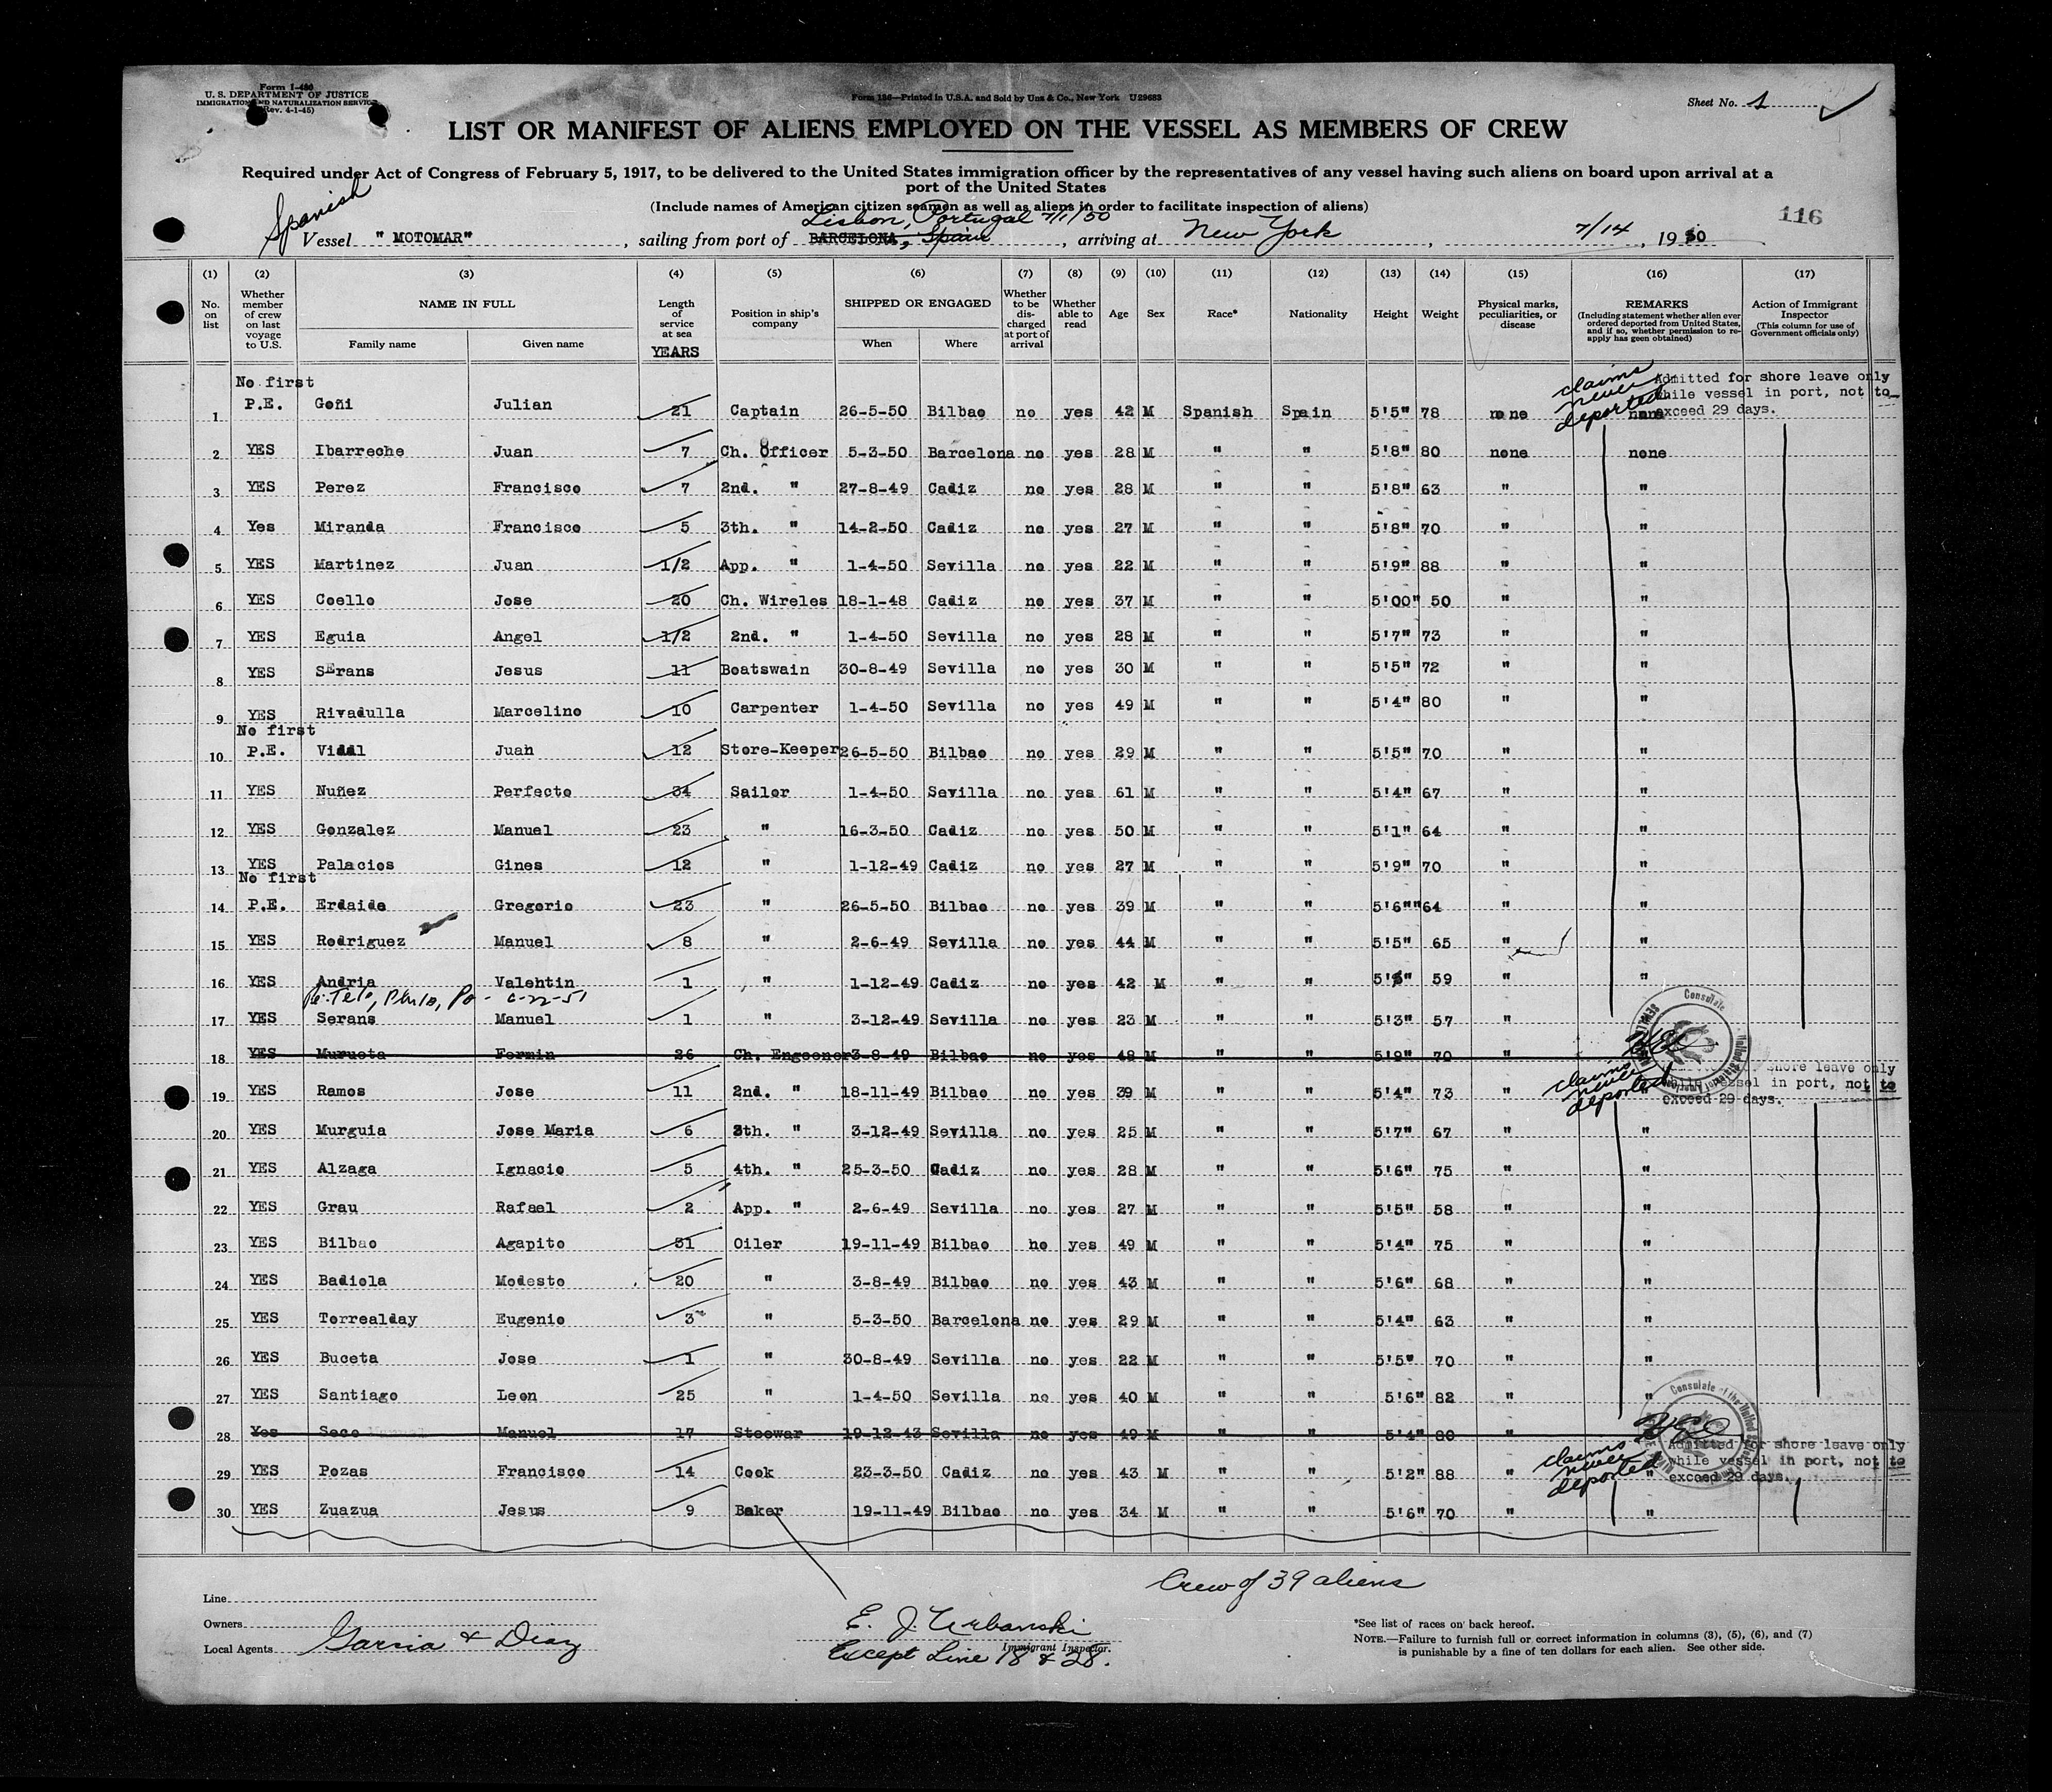 Form I-480
U. S. DEPARTMENT OF JUSTICE
IMMIGRATION AND NATURALIZATION SERVICE
(Rev. 4-1-45)
Form 186—Printed in U.S.A. and Sold by Unz & Co., New York U29683
Sheet No. 1
LIST OR MANIFEST OF ALIENS EMPLOYED ON THE VESSEL AS MEMBERS OF CREW
Required under Act of Congress of February 5, 1917, to be delivered to the United States immigration officer by the representatives of any vessel having such aliens on board upon arrival at a
port of the United States
(Include names of American citizen seamen as well as aliens in order to facilitate inspection of aliens)
Spanish
Lisbon, Portugal 7/1/50
116
Vessel " MOTOMAR" , sailing from port of BARCELONA, Spain , arriving at New York , 7/14 , 1950
(1) (2) (3) (4) (5) (6) (7) (8) (9) (10) (11) (12) (13) (14) (15) (16) (17)
No. on list
Whether member of crew on last voyage to U.S.
NAME IN FULL
Family name Given name
Length of service at sea
YEARS
Position in ship's company
SHIPPED OR ENGAGED
When Where
Whether to be discharged at port of arrival
Whether able to read
Age Sex Race* Nationality Height Weight
Physical marks, peculiarities, or disease
REMARKS
(Including statement whether alien ever ordered deported from United States, and if so, whether permission to reapply has geen obtained)
Action of Immigrant Inspector
(This column for use of Government officials only)
claims never deported
Admitted for shore leave only
while vessel in port, not to
exceed 29 days.
No first
1 P.E. Goñi Julian 21 Captain 26-5-50 Bilbao no yes 42 M Spanish Spain 5'5" 78 none none
2 YES Ibarreche Juan 7 Ch. Officer 5-3-50 Barcelona no yes 28 M " " 5'8" 80 none none
3 YES Perez Francisco 7 2nd. " 27-8-49 Cadiz no yes 28 M " " 5'8" 63 " "
4 Yes Miranda Francisco 5 3th. " 14-2-50 Cadiz no yes 27 M " " 5'8" 70 " "
5 YES Martinez Juan 1/2 App. " 1-4-50 Sevilla no yes 22 M " " 5'9" 88 " "
6 YES Coello Jose 20 Ch. Wireles 18-1-48 Cadiz no yes 37 M " " 5'00" 50 " "
7 YES Eguia Angel 1/2 2nd. " 1-4-50 Sevilla no yes 28 M " " 5'7" 73 " "
8 YES SErans Jesus 11 Boatswain 30-8-49 Sevilla no yes 30 M " " 5'5" 72 " "
9 YES Rivadulla Marcelino 10 Carpenter 1-4-50 Sevilla no yes 49 M " " 5'4" 80 " "
No first
10 P.E. Vidal Juan 12 Store-Keeper 26-5-50 Bilbao no yes 29 M " " 5'5" 70 " "
11 YES Nuñez Perfecto 34 Sailor 1-4-50 Sevilla no yes 61 M " " 5'4" 67 " "
12 YES Gonzalez Manuel 23 " 16-3-50 Cadiz no yes 50 M " " 5'1" 64 " "
13 YES Palacios Gines 12 " 1-12-49 Cadiz no yes 27 M " " 5'9" 70 " "
No first
14 P.E. Erdaide Gregorio 23 " 26-5-50 Bilbao no yes 39 M " " 5'6"" 64 " "
15 YES Rodriguez Manuel 8 " 2-6-49 Sevilla no yes 44 M " " 5'5" 65 " "
16 YES Andria Valentin 1 " 1-12-49 Cadiz no yes 42 M " " 59 " "
Phila, Pa - 6-22-51
17 YES Serans Manuel 1 " 3-12-49 Sevilla no yes 23 M " " 5'3" 57 "
18 YES Murueta Fermin 26 Ch. Engeener 3-8-49 Bilbao no yes 48 M " " 5'9" 70 "
claims never deported
shore leave only
while vessel in port, not to
exceed 29 days.
19 YES Ramos Jose 11 2nd. " 18-11-49 Bilbao no yes 39 M " " 5'4" 73 " "
20 YES Murguia Jose Maria 6 3th. " 3-12-49 Sevilla no yes 25 M " " 5'7" 67 " "
21 YES Alzaga Ignacio 5 4th. " 25-3-50 Cadiz no yes 28 M " " 5'6" 75 " "
22 YES Grau Rafael 2 App. " 2-6-49 Sevilla no yes 27 M " " 5'5" 58 " "
23 YES Bilbao Agapito 31 Oiler 19-11-49 Bilbao no yes 49 M " " 5'4" 75 " "
24 YES Badiola Modesto 20 " 3-8-49 Bilbao no yes 43 M " " 5'6" 68 " "
25 YES Torrealday Eugenio 3 " 5-3-50 Barcelona no yes 29 M " " 5'4" 63 " "
26 YES Buceta Jose 1 " 30-8-49 Sevilla no yes 22 M " " 5'5" 70 " "
27 YES Santiago Leon 25 " 1-4-50 Sevilla no yes 40 M " " 5'6" 82 " "
Consulate of the United
28 Yes Seco Manuel 17 Steewar 19-12-43 Sevilla no yes 49 M " " 5'4" 80 "
claims never deported
Admitted for shore leave only
while vessel in port, not to
exceed 29 days.
29 YES Pozas Francisco 14 Cook 23-3-50 Cadiz no yes 43 M " " 5'2" 88 " "
30 YES Zuazua Jesus 9 Baker 19-11-49 Bilbao no yes 34 M " " 5'6" 70 " "
Crew of 39 aliens
Line
Owners
Local Agents Garcia & Diaz
E. J. Urbanski
Immigrant Inspector.
Except Line 18 & 28.
*See list of races on back hereof.
NOTE.—Failure to furnish full or correct information in columns (3), (5), (6), and (7)
is punishable by a fine of ten dollars for each alien. See other side.